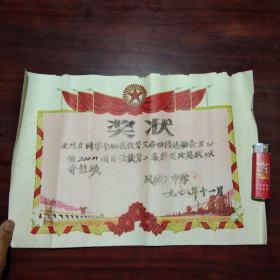 奖状
同学参加我校第三届田径运动会男乙
组200M项目荣获第二名特发此奖状以
资鼓励
中学
一九七八年十一月